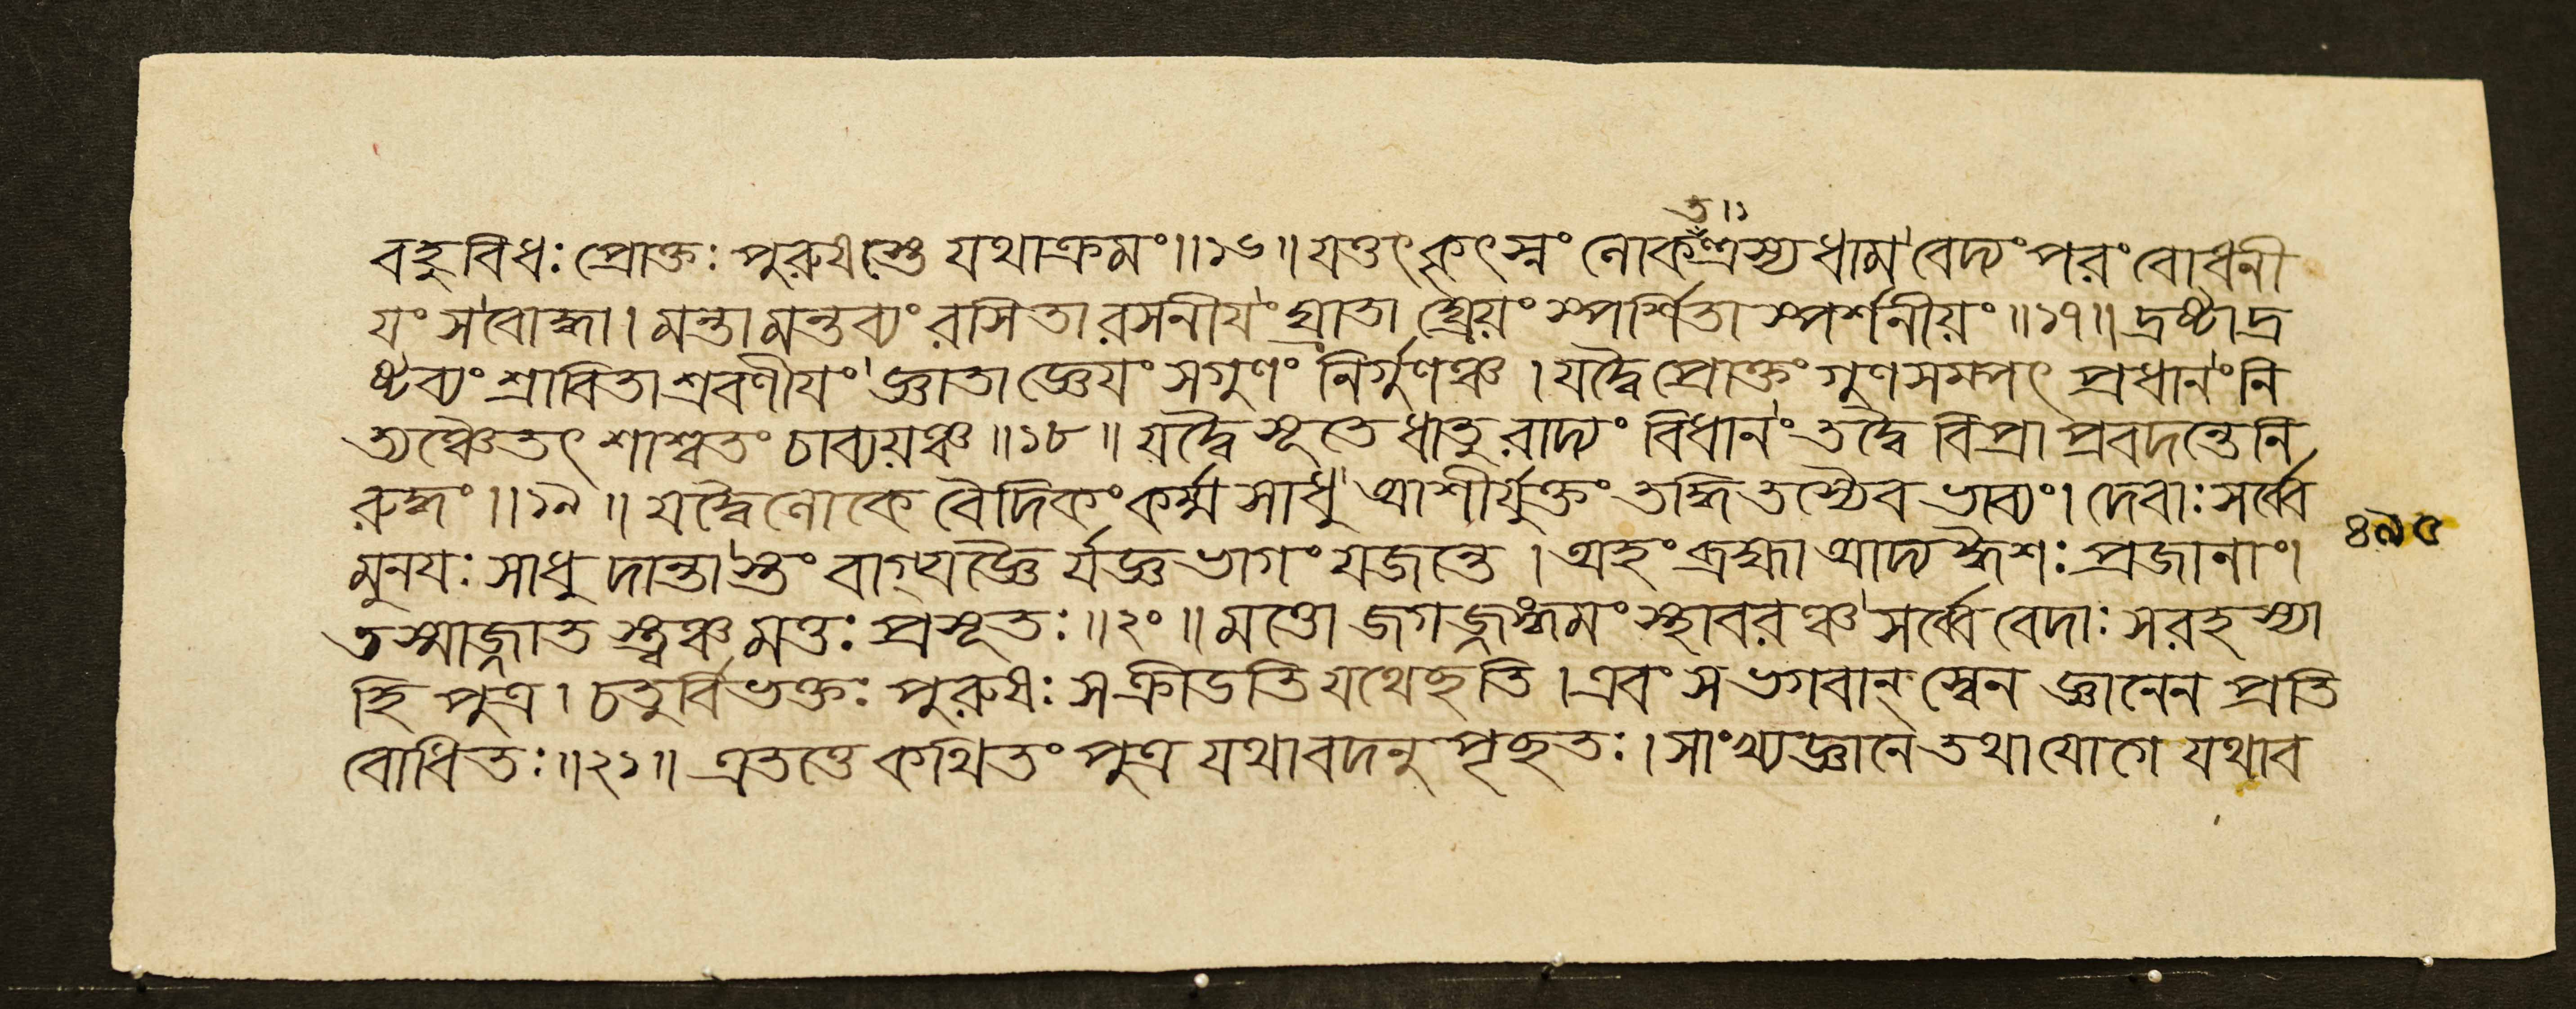 ত ৷৷১
বহুবিধঃ প্রোক্তঃ পুরুষস্তে যথাক্রমং ॥ ১৬ ॥ যত্তৎ কৃৎস্নং লোকতন্ত্রস্য ধাম বেদ্যং পরং বোধনী
য়ং স বোদ্ধা । মন্তা মন্তব্যং রাসিতা রসনীয়ং ঘ্রাতা ঘ্রেয়ং স্পর্শিতা স্পর্শনীয়ং ॥ ১৭ ॥ দ্রষ্টা দ্র
ষ্টব্যং শ্রাবিতা শ্রবণীয়ং জ্ঞাতা জ্ঞেয়ং সগুণং নির্গুণঞ্চ । যদ্বৈ প্রোক্তং গুণসমপৎ প্রধানং নি
ত্যঞ্চৈতৎ শাশ্বতং চাব্যয়ঞ্চ ॥ ১৮ ॥ যদ্বৈ সূতে ধাতুরাদ্যং বিধানং তদ্বৈ বিপ্রা প্রবদন্তেনি
রুদ্ধং ॥ ১৯ ॥ যদ্বৈ লোকে বৈদিকং কর্ম্ম সাধু আশীর্যুক্তং তদ্ধি তস্যৈব ভাব্যং । দেবাঃ সর্ব্বে
মুনয়ঃ সাধু দান্তাস্তং বাগ্যজ্ঞৈর্যজ্ঞভাগং যজন্তে । অহং ব্রহ্মা আদ্য ঈশঃ প্রজানাং ।
তস্মাজ্জাতস্ত্বঞ্চ মত্তঃ প্রসূতঃ ॥ ২০ ॥ মত্তো জগজ্জঙ্গমং স্থাবরঞ্চ সর্ব্বে বেদাঃ সরহস্যা
হি পুত্র । চতুর্বিভক্তঃ পুরুষঃ স ক্রীডতি যথেছতি । এবং স ভগবান্ স্বেন জ্ঞানেন প্রতি
বোধিতঃ ॥ ২১ ॥ এতত্তে কথিতং পুত্র যথাবদনুপৃছতঃ । সাংখ্যজ্ঞানে তথা যোগে যথাব
৪৯৫